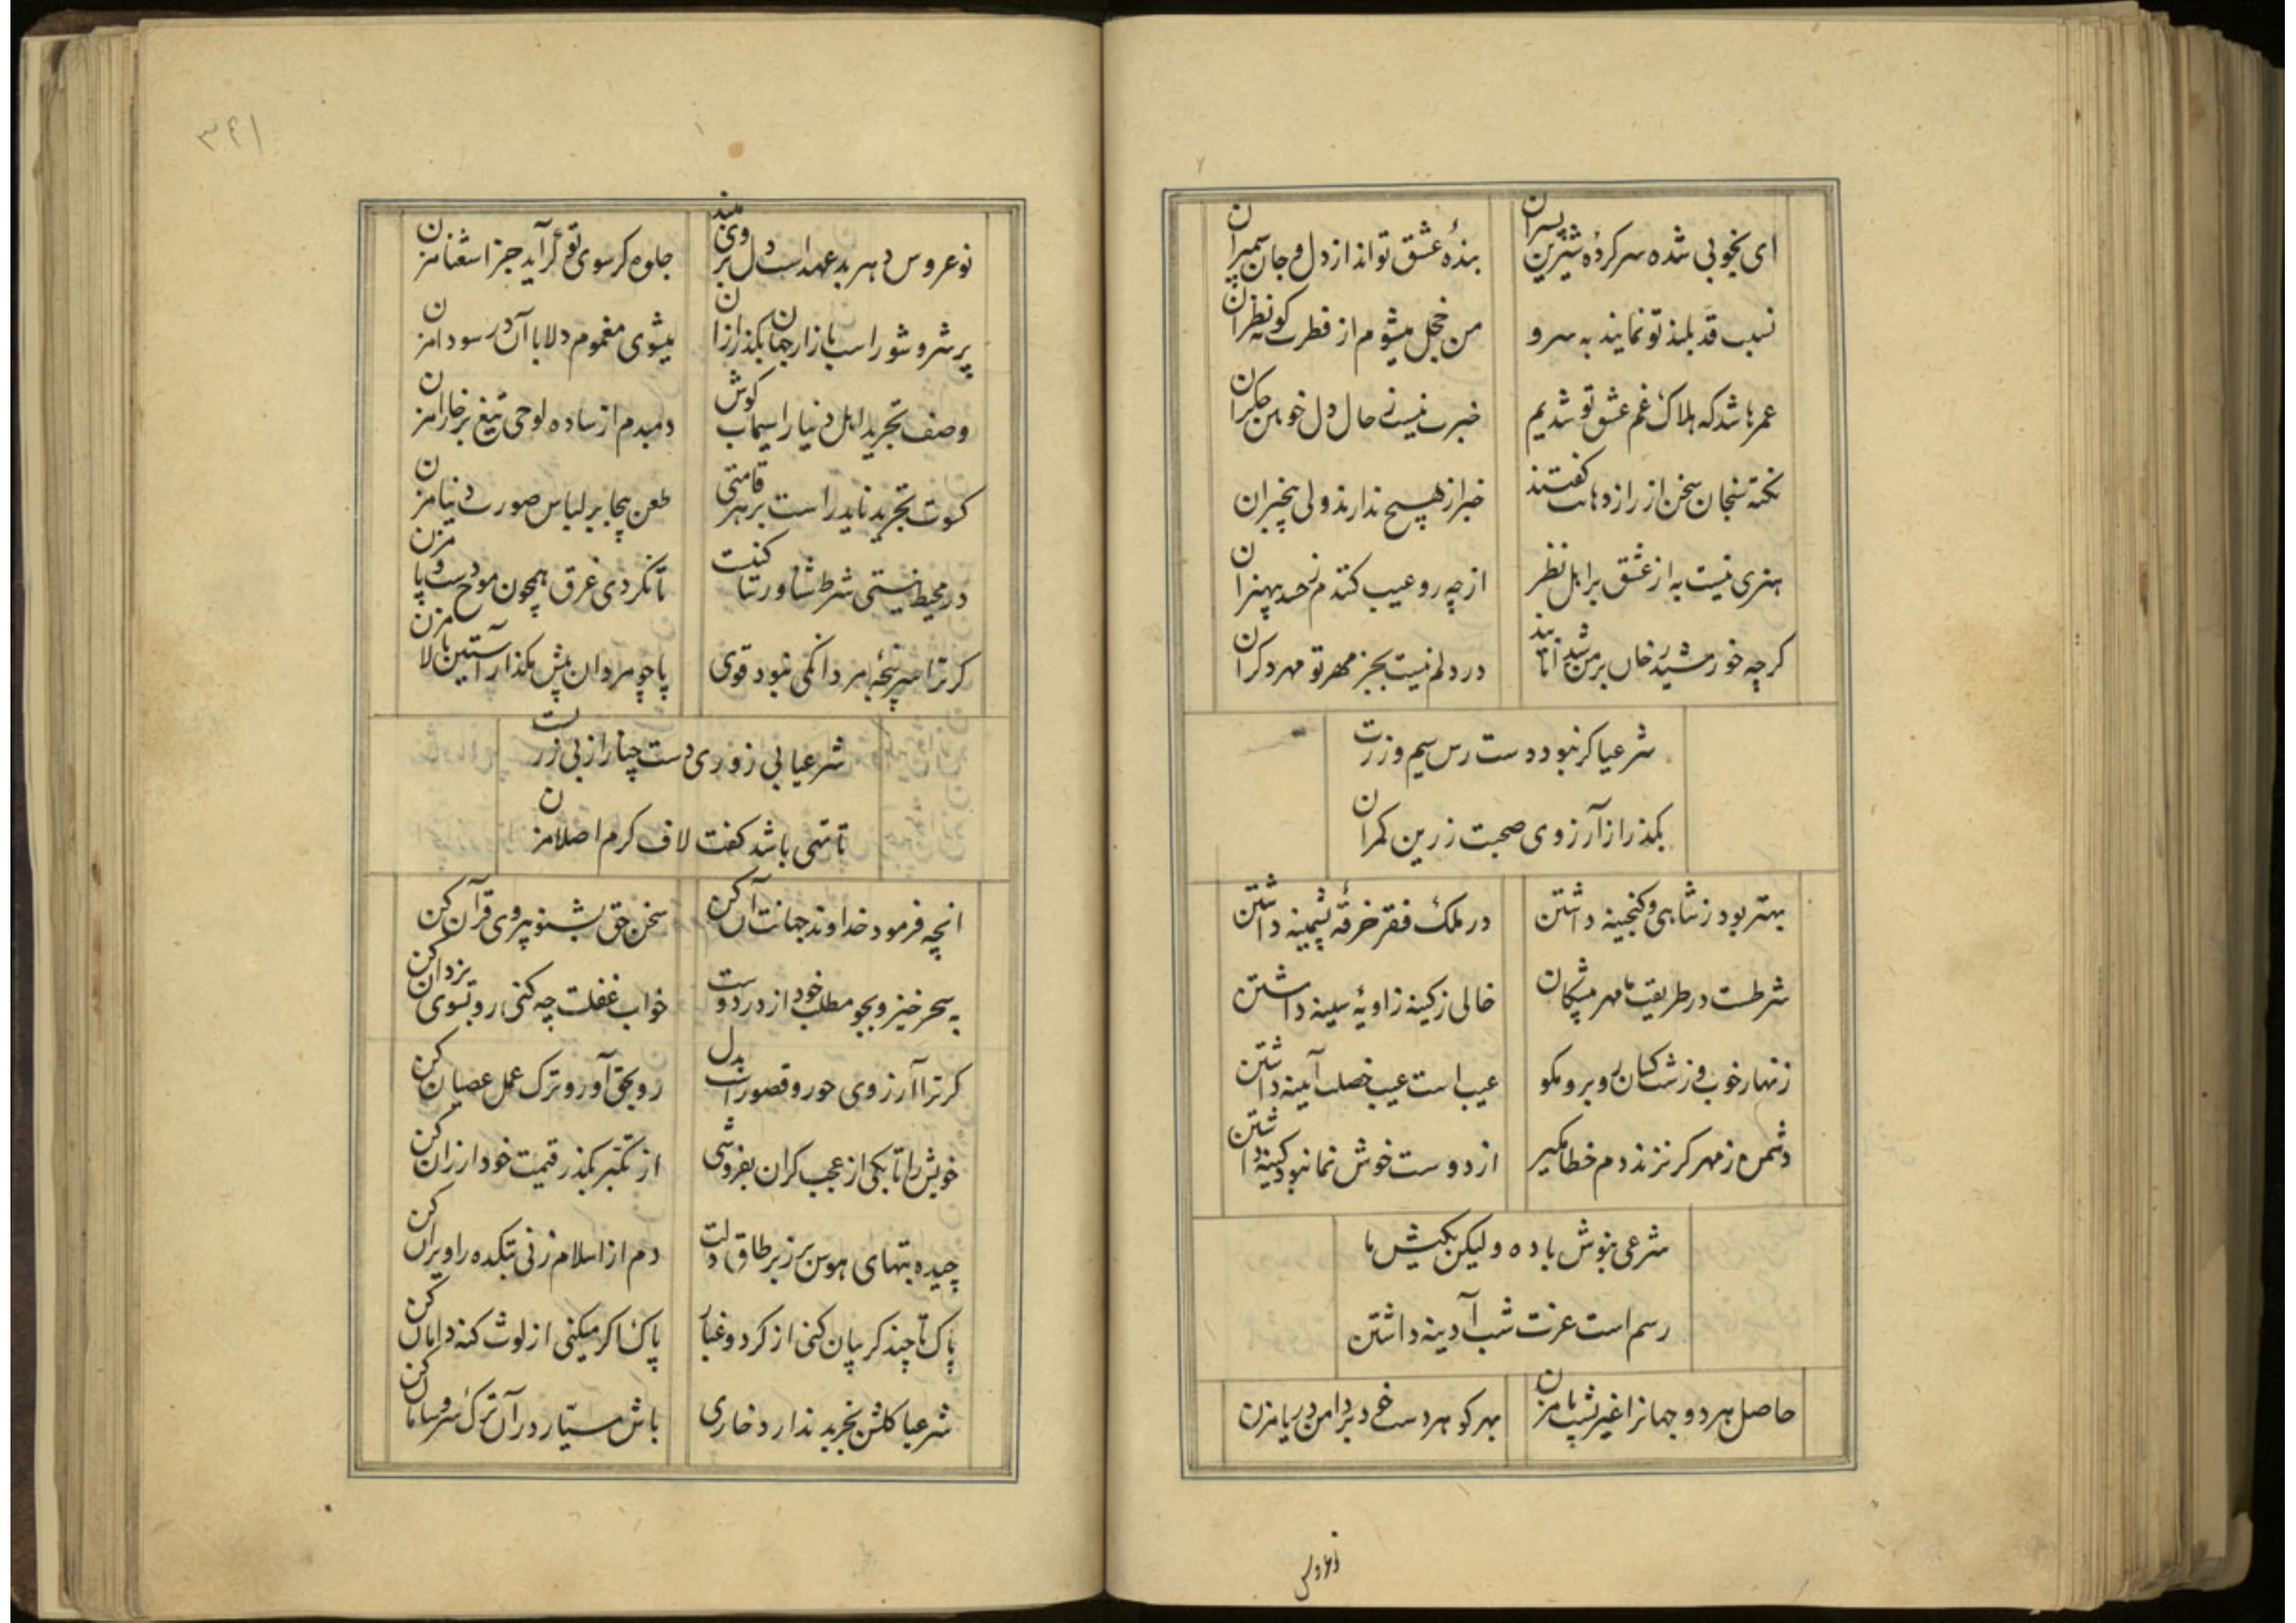 ای بخوبی شده سرکردهٔ شیرین پسران
بندهٔ عشق تواند از دل و جان سیمبران
نسبت قد بلند تو نمایند به سرو
من خجل میشوم از فطرت کوته نظران
عمرها شد که هلاک غم عشق تو شدیم
خبرت نیست ز حال دل خونین جکران
نکته سنجان سخن از راز دهانت کفتند
خبر از هیچ ندارند ولی بیخبران
هنری نیست به از عشق بر اهل نظر
از چه رو عیب کنندم ز حسد بیهنران
کرچه خورشید رخان بر من شیدانایند
در دلم نیست بجز مهر تو مهر دکران
شرعیا کر نبود دست رس سیم و زرت
بکذر از آرزوی صحبت زرین کمران
بهتر بود ز شاهی و کنجینه داشتن
در ملک فقر خرقهٔ پشمینه داشتن
شرطست در طریقت ما مهر پیشکان
خالی ز کینه زاویهٔ سینه داشتن
زنهار خوب و زشت کسان رو برو مکو
عیب است عیب خصلت آیینه داشتن
دشمن ز مهر کر نزند دم خطا مکیر
از دوست خوش نما نبود کینه داشتن
شرعی بنوش باده ولیکن بکیش ما
رسم است عزت شب آدینه داشتن
حاصل هر دو جهانرا غیر پشت پا مزن
بهر کوهر دست خود بر دامن دریا مزن
نوعروس
۳۴۱
نوعروس دهر بد عهد است دل بروی مبند
جلوه کر سوی تو کر آید جز استغنا مزن
پر شر و شور است بازار جهان بکذر ازان
میشوی مغموم دلا با آن در سودا مزن
وصف تجرید اهل دنیا را سیماب کوش
دمبدم از ساده لوحی تیغ بر خارا مزن
کسوت تجرید ناید راست بر هر قامتی
طعن بیجا بر لباس صورت دنیا مزن
در محیط نیستی شرط شناور نیتا کنت
تا نکردی غرق همچون موج دست و پا مزن
کر ترا سرپنجهٔ مردانکی نبود قوی
پا چو مردان پیش مکذار آستین بالا مزن
شرعیا بی زوری دست چنار از بی زریست
تا تهی باشد کفت لاف کرم اصلا مزن
انچه فرمود خداوند جهانت آن کن
سخن حق بشنو پیروی قرآن کن
به سحر خیز و بجو مطلب خود از در دوست
خواب غفلت چه کنی رو بسوی یزدان کن
کر ترا آرزوی حور و قصور است بدل
رو بحق آور و ترک عمل عصیان کن
خویش را تا بکی از عجب کران بفروشی
از تکبر بکذر قیمت خود ارزان کن
چیده بتهای هوس بر زبر طاق دلت
دم از اسلام زنی بتکده را ویران کن
پاک تا چند کریبان کنی از کرد و غبار
پاک اکر میکنی از لوث کنه دامان کن
شرعیا کلشن تجرید ندارد خاری
باش سیار در آن ترک سر و سامان کن